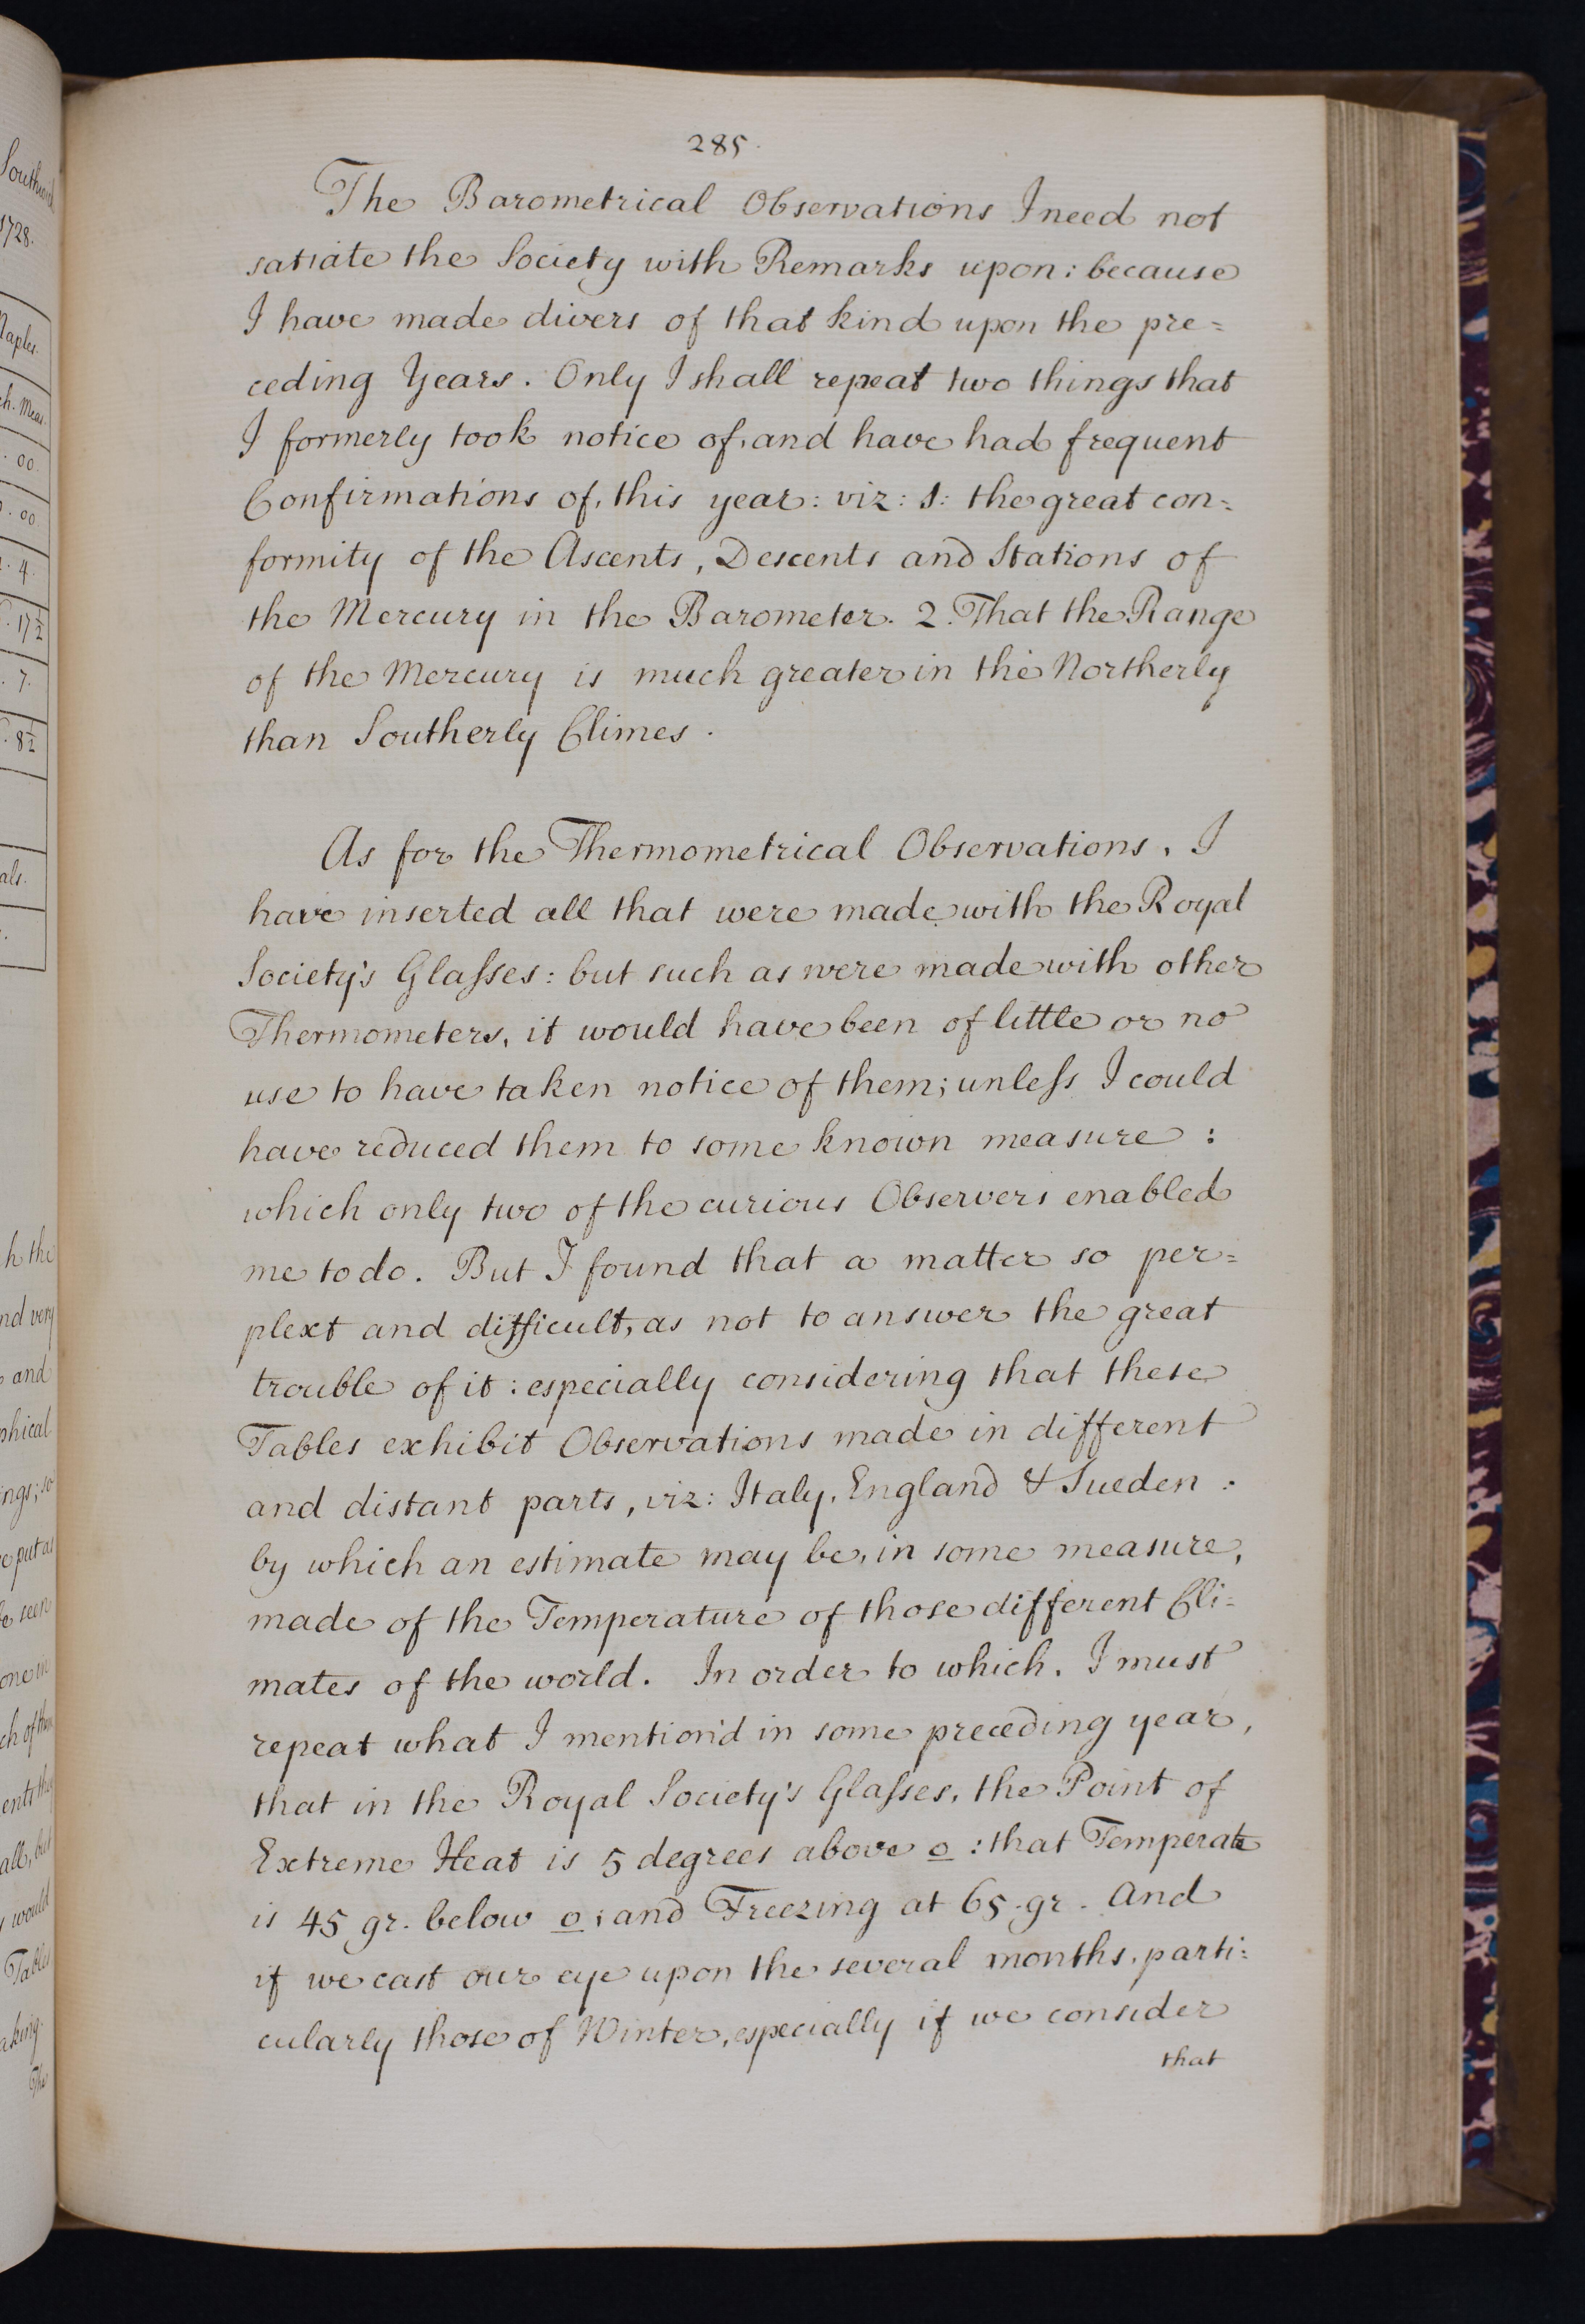 285.
The Barometrical Observations I need not
satiate the Society with Remarks upon: because
I have made divers of that kind upon the pre=
ceding Years. Only I shall repeat two things that
I formerly took notice of, and have had frequent
Confirmations of, this year: viz: 1: the great con=
formity of the Ascents, Descents and Stations of
the Mercury in the Barometer. 2. That the Range
of the Mercury is much greater in the Northerly
than Southerly Climes.
As for the Thermometrical Observations, I
have inserted all that were made with the Royal
Society's Glaſses: but such as were made with other
Thermometers, it would have been of little or no
use to have taken notice of them; unleſs I could
have reduced them to some known measure:
which only two of the curious Observers enabled
me to do. But I found that a matter so per=
plext and difficult, as not to answer the great
trouble of it: especially considering that these
Tables exhibit Observations made in different
and distant parts, viz: Italy, England & Sueden:
by which an estimate may be, in some measure,
made of the Temperature of those different Cli=
mates of the world. In order to which, I must
repeat what I mention'd in some preceding year,
that in the Royal Society's Glaſses, the Point of
Extreme Heat is 5 degrees above 0: that Temperate
is 45 gr. below 0; and Freezing at 65. gr. And
if we cast our eye upon the several months, parti=
cularly those of Winter, especially if we consider
that
1728.
Naples.
00.
00.
4.
17½
7.
8½
and
Table
The